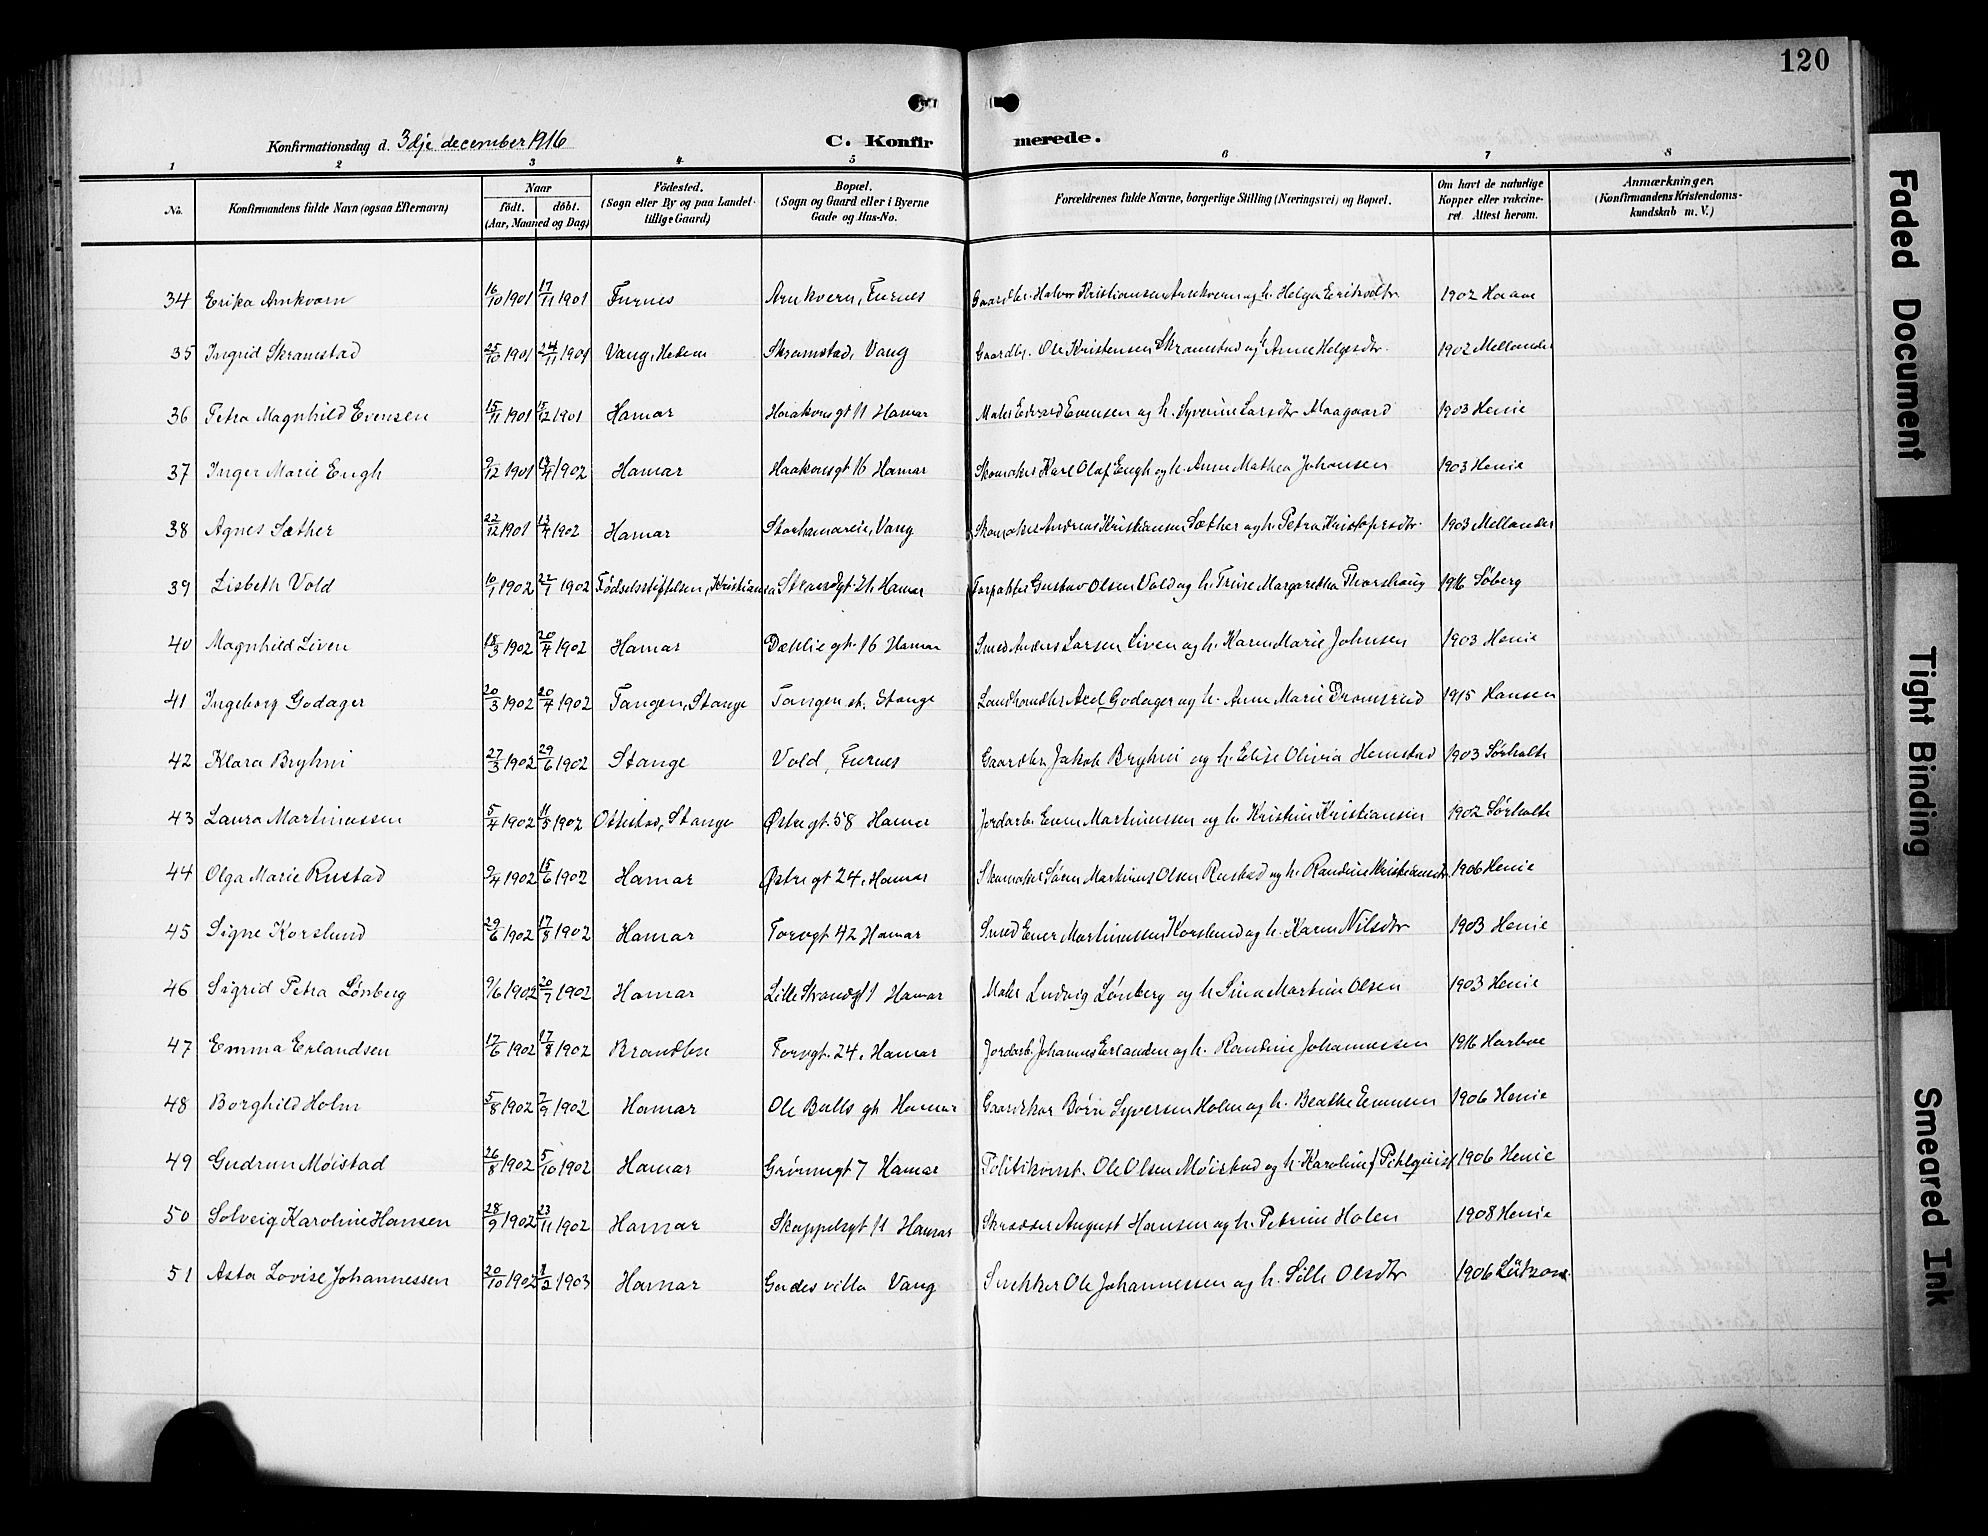 120
Konfirmationsdag d. 3dje december 1916
C. Konfirmerede.
1 2 3 4 5 6 7 8
No. Konfirmandens fulde Navn (ogsaa Efternavn) Naar födt. döbt. (Aar, Maaned og Dag) Födested. (Sogn eller By og paa Landet tillige Gaard) Bopæl. (Sogn og Gaard eller i Byerne Gade og Hus-No. Forældrenes fulde Navne, borgerlige Stilling (Næringsvei) og Bopæl. Om havt de naturlige Kopper eller vakcineret. Attest herom. Anmærkninger. (Konfirmandens Kristendomskundskab m. V.)
34 Erika Arnkværn 16/10 1901 17/11 1901 Furnes Arnkvern, Furnes Gaardbr. Halvor Kristiansen Arnkvern og h. Helga Eriksdtr 1902 Haave
35 Ingrid Skramstad 25/10 1901 24/11 1901 Vang, Hedem Skramstad, Vang Gaardbr. Ole Kristensen Skramstad og h. Anne Helgesdtr. 1902 Mellander
36 Petra Magnhild Evensen 15/11 1901 15/12 1901 Hamar Haakonsgt 11 Hamar Maler Edvard Evensen og h. Syverine Larsdtr Maagaard 1903 Henie
37 Inger Marie Engh 9/12 1901 13/4 1902 Hamar Haakonsgt 16 Hamar Skomaker Karl Olaf Engh og h. Anne Mathea Johansen 1903 Henie
38 Agnes Sæther 22/12 1901 13/4 1902 Hamar Storhamareie, Vang Skomaker Andreas Kristiansen Sæther og h. Petra Kristofersdtr. 1903 Mellander
39 Lisbeth Vold 10/1 1902 22/7 1902 Fødselsstiftelsen, Kristiania Strandgt. 21. Hamar Forpakter Gustav Olsen Vold og h. Trine Margarethe Thorshaug 1916 Søberg
40 Magnhild Liven 18/3 1902 20/4 1902 Hamar Dahliegt. 16 Hamar Smed Anders Larsen Liven og h. Karen Marie Johnsen 1903 Henie
41 Ingeborg Godager 20/3 1902 20/4 1902 Tangen, Stange Tangen st. Stange Landhandler Axel Godager og h. Anne Marie Dramsrud 1915 Hansen
42 Klara Bryhni 27/3 1902 29/6 1902 Stange Vold, Furnes Gaardbr. Jakob Bryhni og h. Elise Olivia Hemstad 1903 Sørholte
43 Laura Martinussen 5/4 1902 11/5 1902 Ottestad, Stange Østregt. 58 Hamar Jordarb. Even Martinussen og h. Kristine Kristiansen 1902 Sørholte
44 Olga Marie Rustad 9/4 1902 15/6 1902 Hamar Østregt 24, Hamar Skomaker Søren Martinus Olsen Rustad og h. Randine Kristiansdtr 1906 Henie
45 Signe Korslund 29/6 1902 17/8 1902 Hamar Torvgt 42 Hamar Smed Ener Martinussen Korslund og h. Karen Nilsdtr 1903 Henie
46 Sigrid Petra Lönberg 9/6 1902 20/7 1902 Hamar Lille Strandgt 1 Hamar Maler Ludvig Lönberg og h. Sina Martine Olsen 1903 Henie
47 Emma Erlandsen 17/6 1902 17/8 1902 Brandbu Torvgt. 24. Hamar Jordarb. Johannes Erlandsen og h. Randine Johannessen 1916 Harboe
48 Borghild Holm 5/8 1902 7/9 1902 Hamar Ole Bulls gt Hamar Gaardskar Børre Syversen Holm og h. Beathe Evensen 1906 Henie
49 Gudrun Møistad 26/8 1902 5/10 1902 Hamar Grønnegt 7 Hamar Politikonst. Ole Olsen Møistad og h. Karoline Pihlquist 1906 Henie
50 Solveig Karoline Hansen 28/9 1902 23/11 1902 Hamar Skappelsgt 11 Hamar Skrædder August Hansen og h. Petrine Holen 1908 Henie
51 Asta Lovise Johannessen 20/10 1902 1/2 1903 Hamar Gudesvilla Vang Snekker Ole Johannessen og h. Sille Olsdtr 1906 Lützow.
Faded Document
Tight Binding
Smeared Ink